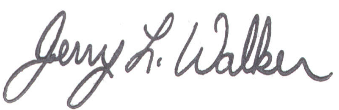 Jerry L. Walker